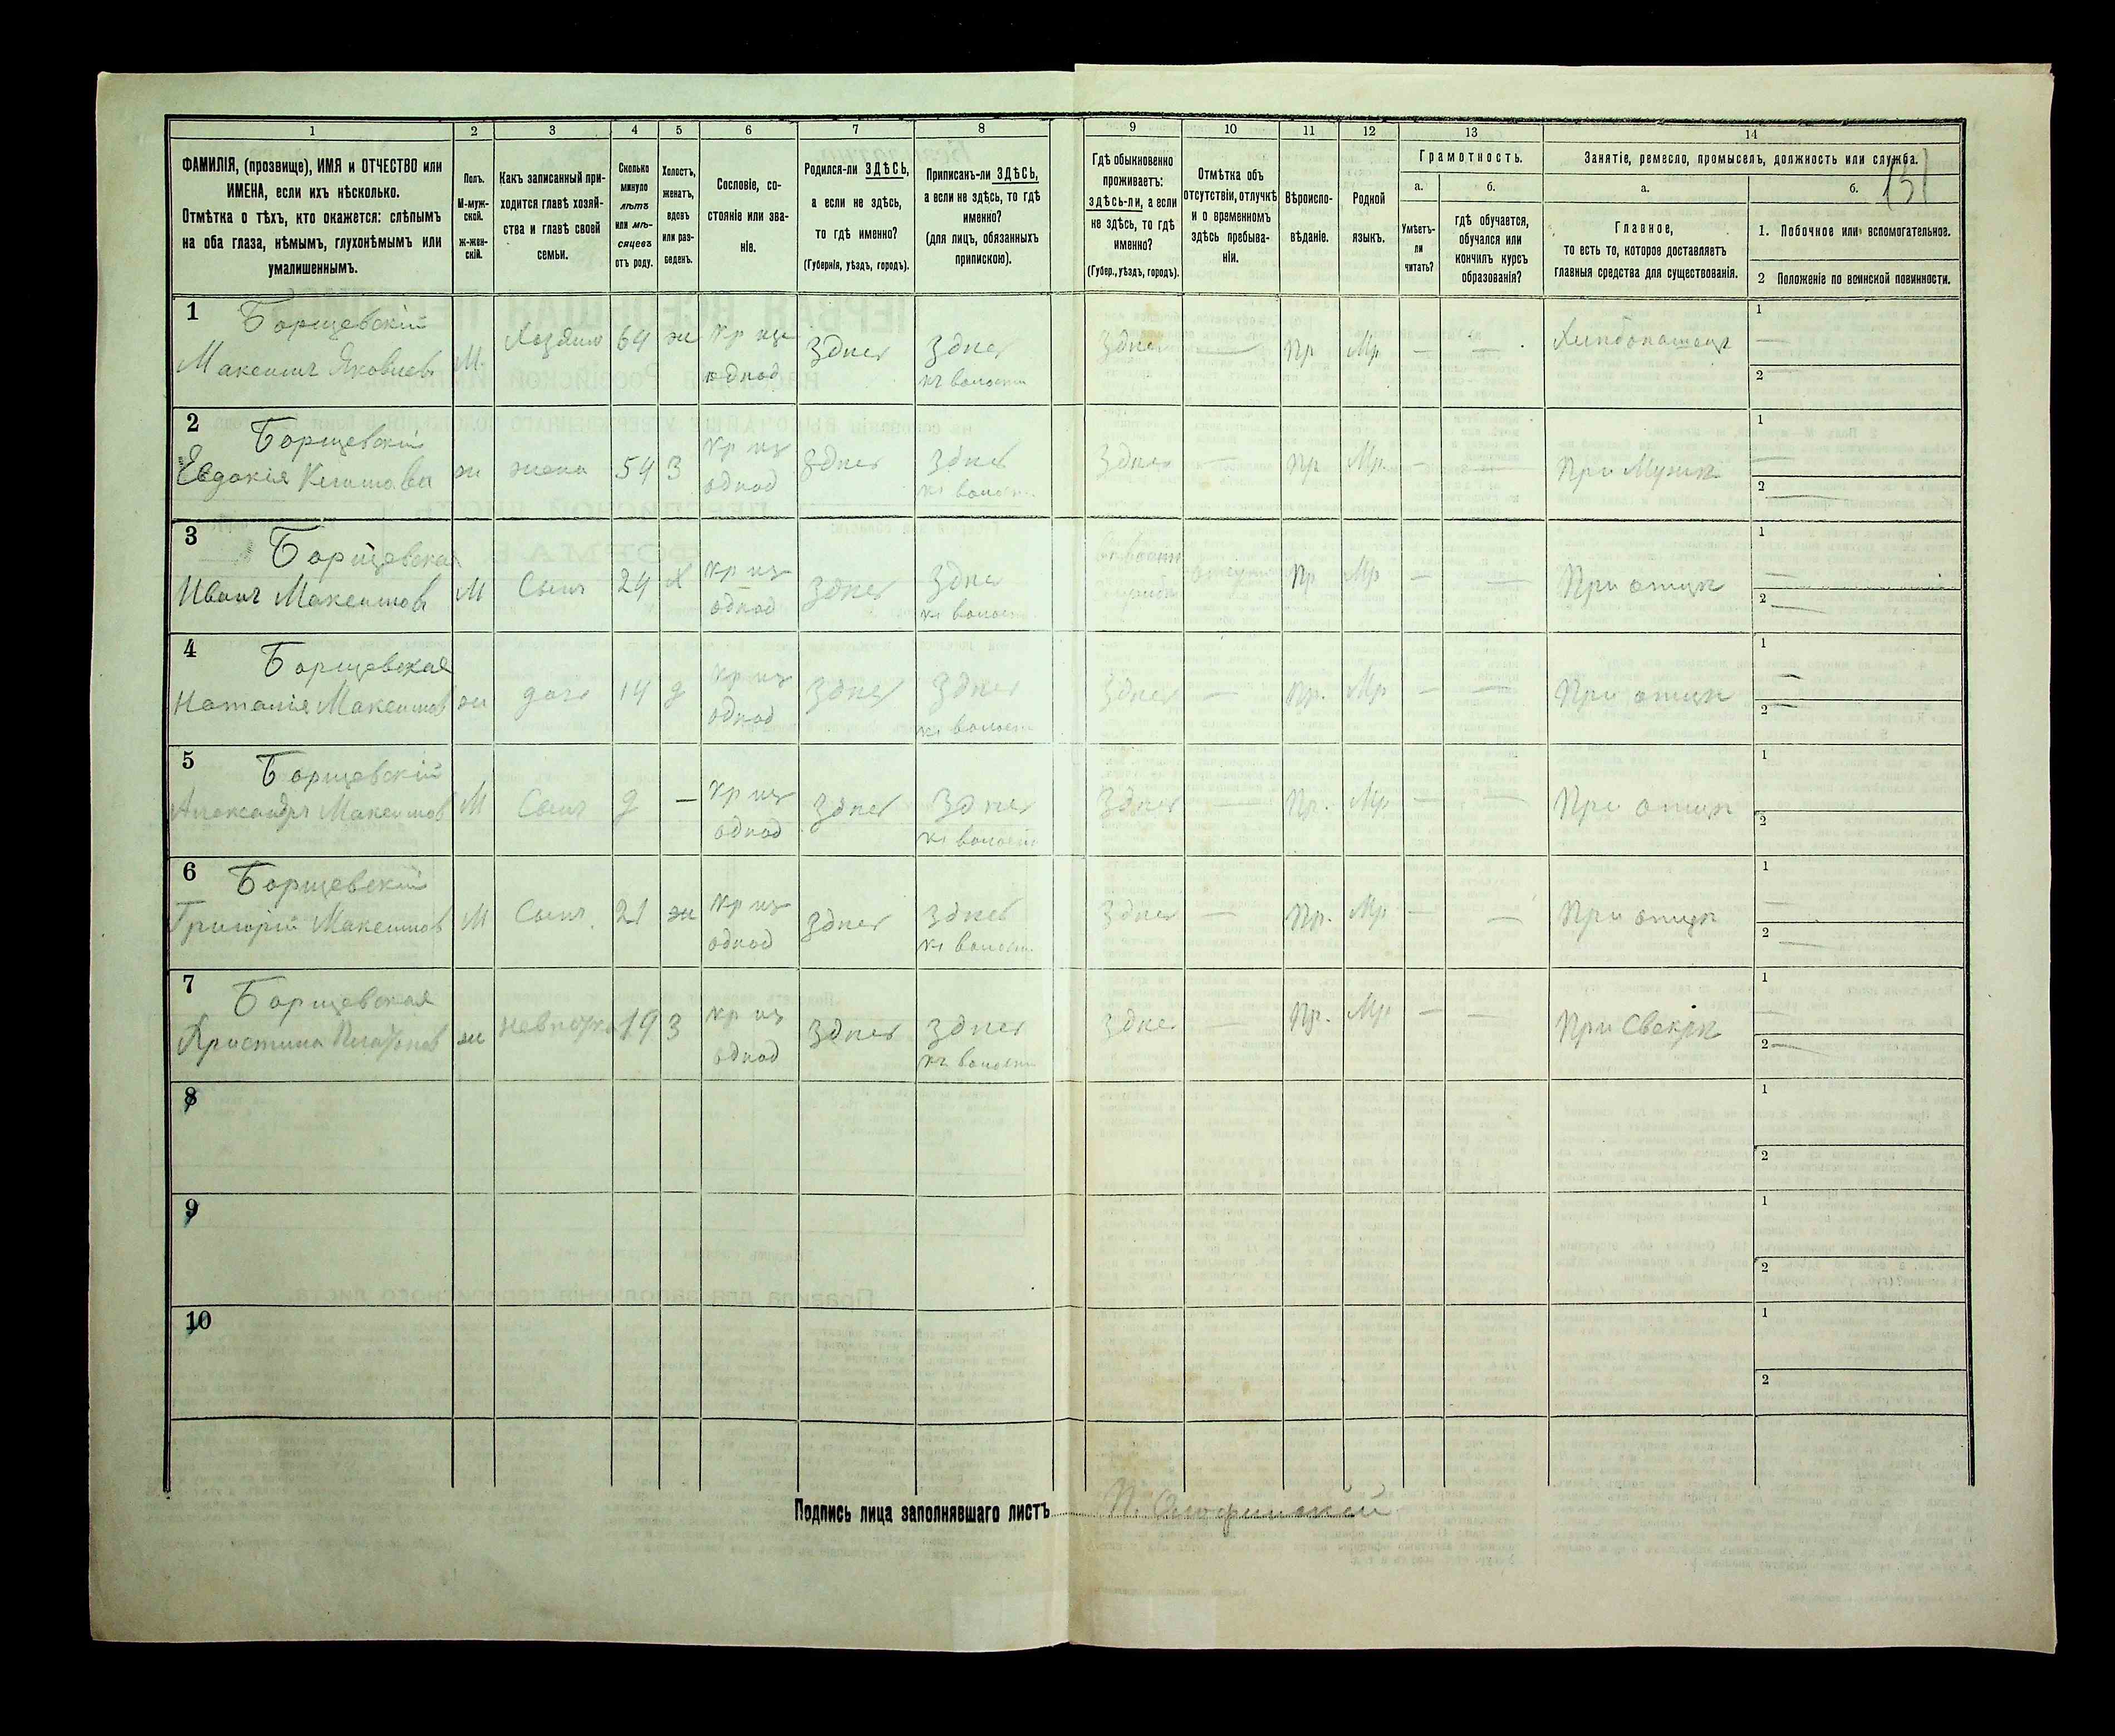 1 2 3 4 5 6 7 8 9 10 11 12 13 14
ФАМИЛІЯ, (прозвище), ИМЯ и ОТЧЕСТВО или
ИМЕНА, если ихъ нѣсколько.
Отмѣтка о тѣхъ, кто окажется: слѣпымъ
на оба глаза, нѣмымъ, глухонѣмымъ или
умалишеннымъ.
Полъ.
М-муж-
ской.
ж-жен-
скій.
Какъ записанный при-
ходится главѣ хозяй-
ства и главѣ своей
семьи.
Сколько
минуло
лѣтъ
или мѣ-
сяцевъ
отъ роду.
Холостъ,
женатъ,
вдовъ
или раз-
веденъ.
Сословіе, со-
стояніе или зва-
ніе.
Родился-ли ЗДѢСЬ,
а если не здѣсь,
то гдѣ именно?
(Губернія, уѣздъ, городъ).
Приписанъ-ли ЗДѢСЬ,
а если не здѣсь, то гдѣ
именно?
(для лицъ, обязанныхъ
припискою).
Гдѣ обыкновенно
проживаетъ:
здѣсь-ли, а если
не здѣсь, то гдѣ
именно?
(Губер., уѣздъ, городъ).
Отмѣтка объ
отсутствіи, отлучкѣ
и о временномъ
здѣсь пребыва-
ніи.
Вѣроиспо-
вѣданіе.
Родной
языкъ.
Грамотность.
а.
Умѣетъ-
ли
читать?
б.
гдѣ обучается,
обучался или
кончилъ курсъ
образованія?
Занятіе, ремесло, промыселъ, должность или служба.
131
а.
Главное,
то есть то, которое доставляетъ
главныя средства для существованія.
б.
1. Побочное или вспомогательное.
2 Положеніе по воинской повинности.
1 Борщевскій
Максимъ Яковлевъ М. Хозяинъ 64 ж Кр из однод Здѣсь Здѣсь къ волости Здѣсь — Пр Мр — — Хлѣбопашецъ 1 — 2
2 Борщевскій
Евдокія ж жена 54 З Кр из однод Здѣсь Здѣсь къ волости Здѣсь — Пр Мр — — При Мужѣ 1 — 2 —
3 Борщевская
Иванъ Максимовъ М Сынъ 24 Х Кр из однод Здѣсь Здѣсь къ волост Пр Мр — — При отцѣ 1 — 2 —
4 Борщевская
Наталія Максимов ж дочь 14 д Кр из однод Здѣсь Здѣсь къ волост Здѣсь — Пр. Мр — — При отцѣ 1 — 2 —
5 Борщевскій
Александръ Максимов М Сынъ 9 — Кр из однод Здѣсь Здѣсь къ волост Здѣсь — Пр. Мр — — При отцѣ 1 2
6 Борщевскій
Григорій Максимов М Сынъ 21 ж Кр из однод Здѣсь Здѣсь къ волост Здѣсь — Пр. Мр — — При отцѣ 1 — 2 —
7 Борщевская
Христина Платонов ж невѣстка 19 З Кр из однод Здѣсь Здѣсь къ волости Здѣсь — Пр. Мр — — При Свекрѣ 1 — 2 —
8 1 2
9 1 2
10 1 2
Подпись лица заполнявшаго листъ